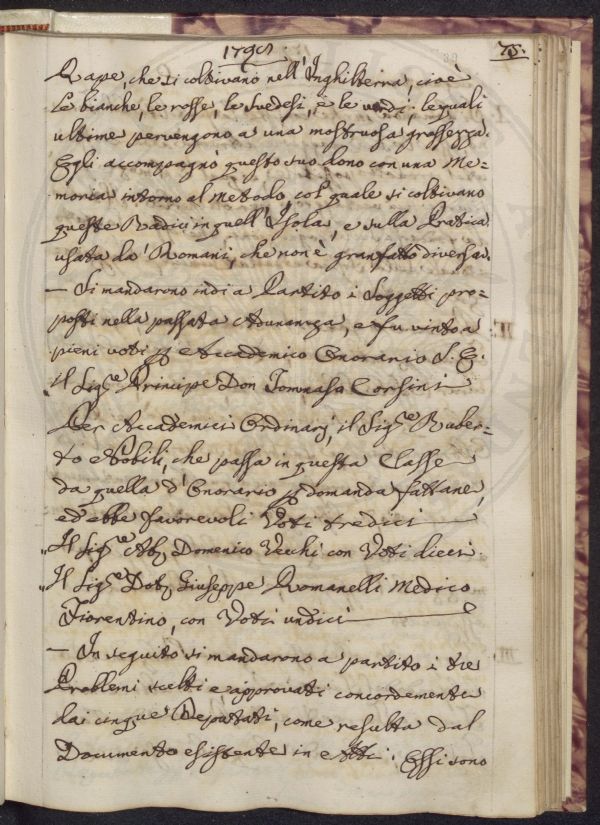 1790. 75.
Rape, che si coltivano nell'Inghilterra, cioè
le bianche, le rosse, le Svedesi, e le verdi; le quali
ultime pervengono a una mostruosa grossezza.
Egli accompagnò questo suo dono con una Me=
moria intorno al metodo, col quale si coltivano
queste Radici in quell'Isola, e sulla Pratica
usata da' Romani, che non è granfatto diversa.
— Si mandarono indi a Partito i Soggetti pro=
posti nella passata Adunanza, e fu vinto a
pieni voti p Accademico Onorario S. E.
il Sig.e Principe Don Tommaso Corsini
Per Accademici Ordinarj, il Sig.e Ruber=
to Nobili, che passa in questa Classe
da quella d'Onorario p domanda fattane,
ed ebbe favorevoli Voti tredici
Il Sig.e Ab. Domenico Vecchi con Voti dieci.
Il Sig.e Dot. Giuseppe Romanelli Medico
Fiorentino, con Voti undici
— In seguito si mandarono a partito i tre
Problemi scelti e approvati concordemente
dai cinque Deputati, come resulta dal
Documento esistente in Atti. Essi sono